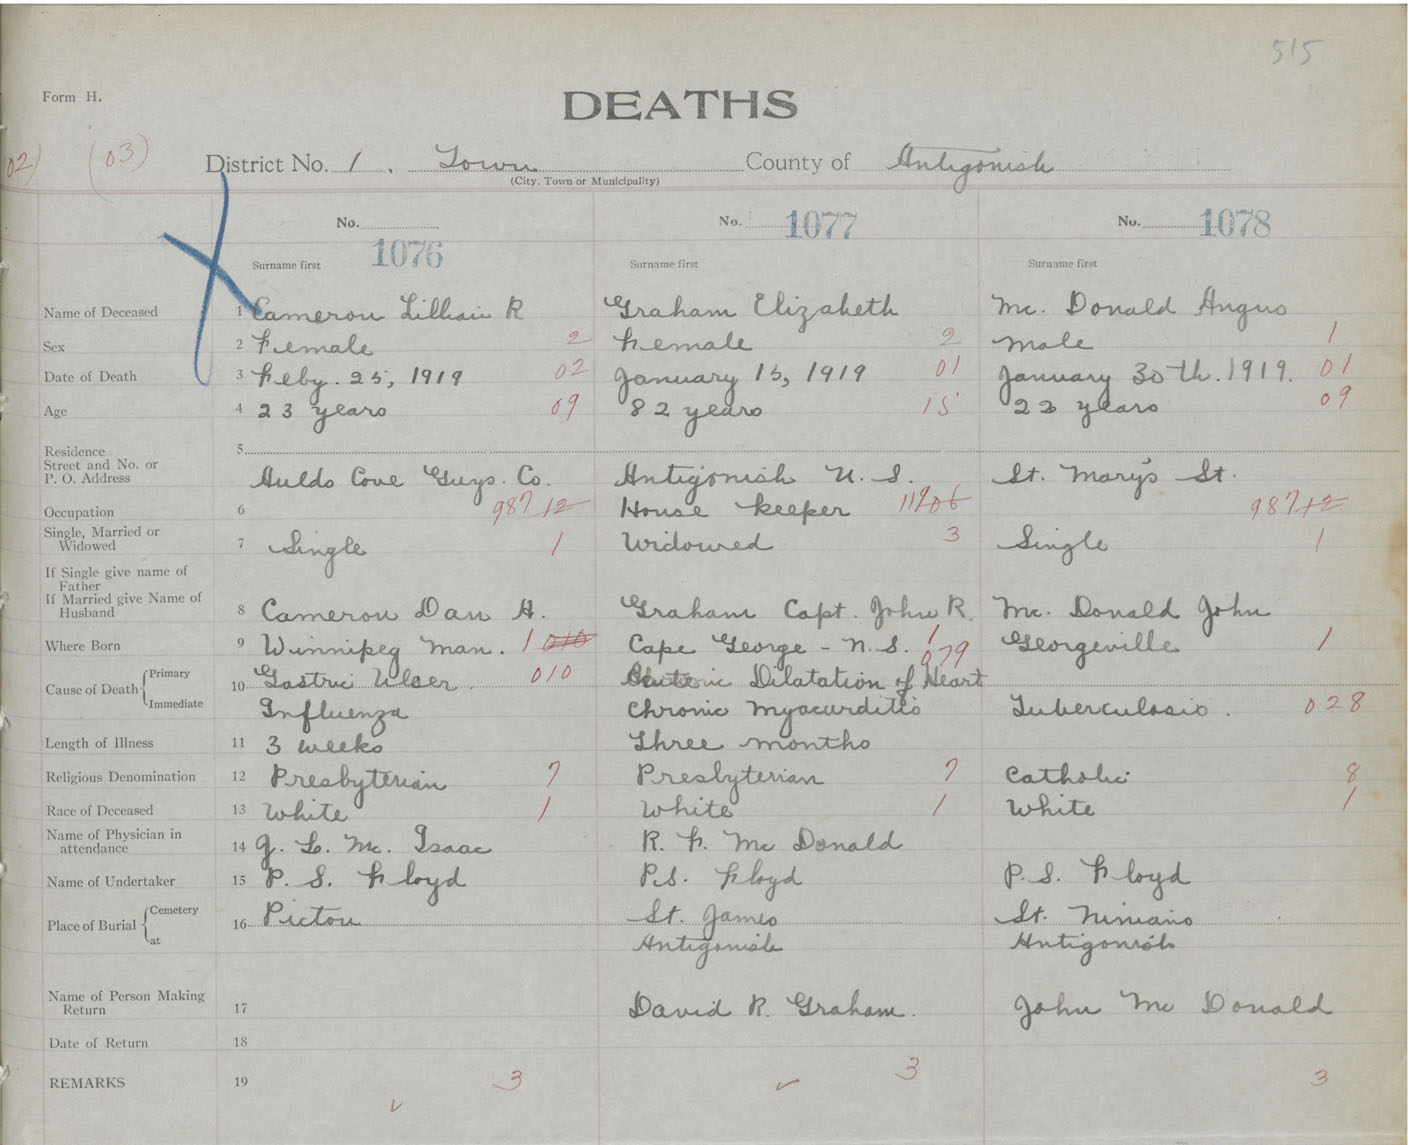 515
Form H.
DEATHS
02) (03) District No. 1. Town County of Antigonish
(City, Town or Municipality)
No. No. 1077 No. 1078
1076
Surname first Surname first Surname first
Name of Deceased 1 Cameron Lillian R Graham Elizabeth Mc. Donald Angus
Sex 2 Female 2 Female 2 Male 1
Date of Death 3 Feby. 25, 1919 02 January 15, 1919 01 January 30th. 1919. 01
Age 4 23 years 09 82 years 15 22 years 09
Residence 5
Street and No. or
P. O. Address Aulds Cove Guys. Co. Antigonish N. S. St. Mary's St.
Occupation 6 98712 House keeper 98712
Single, Married or
Widowed 7 Single 1 Widowed 3 Single 1
If Single give name of
Father
If Married give Name of
Husband 8 Cameron Dan H. Graham Capt. John R. Mc. Donald John
Where Born 9 Winnipeg Man. 1 010 Cape George - N. S. 1 079 Georgeville 1
Cause of Death Primary 10 Gastric Ulser 010 Dilatation of Heart
Immediate Influenza Chronic Myacarditis Tuberculosis. 028
Length of Illness 11 3 weeks Three months
Religious Denomination 12 Presbyterian 7 Presbyterian 7 Catholic 8
Race of Deceased 13 White 1 White 1 White 1
Name of Physician in
attendance 14 J. L. Mc. Isaac R. F. Mc Donald
Name of Undertaker 15 P. S. Floyd P.S. Floyd P. S. Floyd
Place of Burial Cemetery 16 Pictou St. James St. Ninians
at Antigonish Antigonish
Name of Person Making
Return 17 David R. Graham. John Mc Donald
Date of Return 18
REMARKS 19 3 3 3